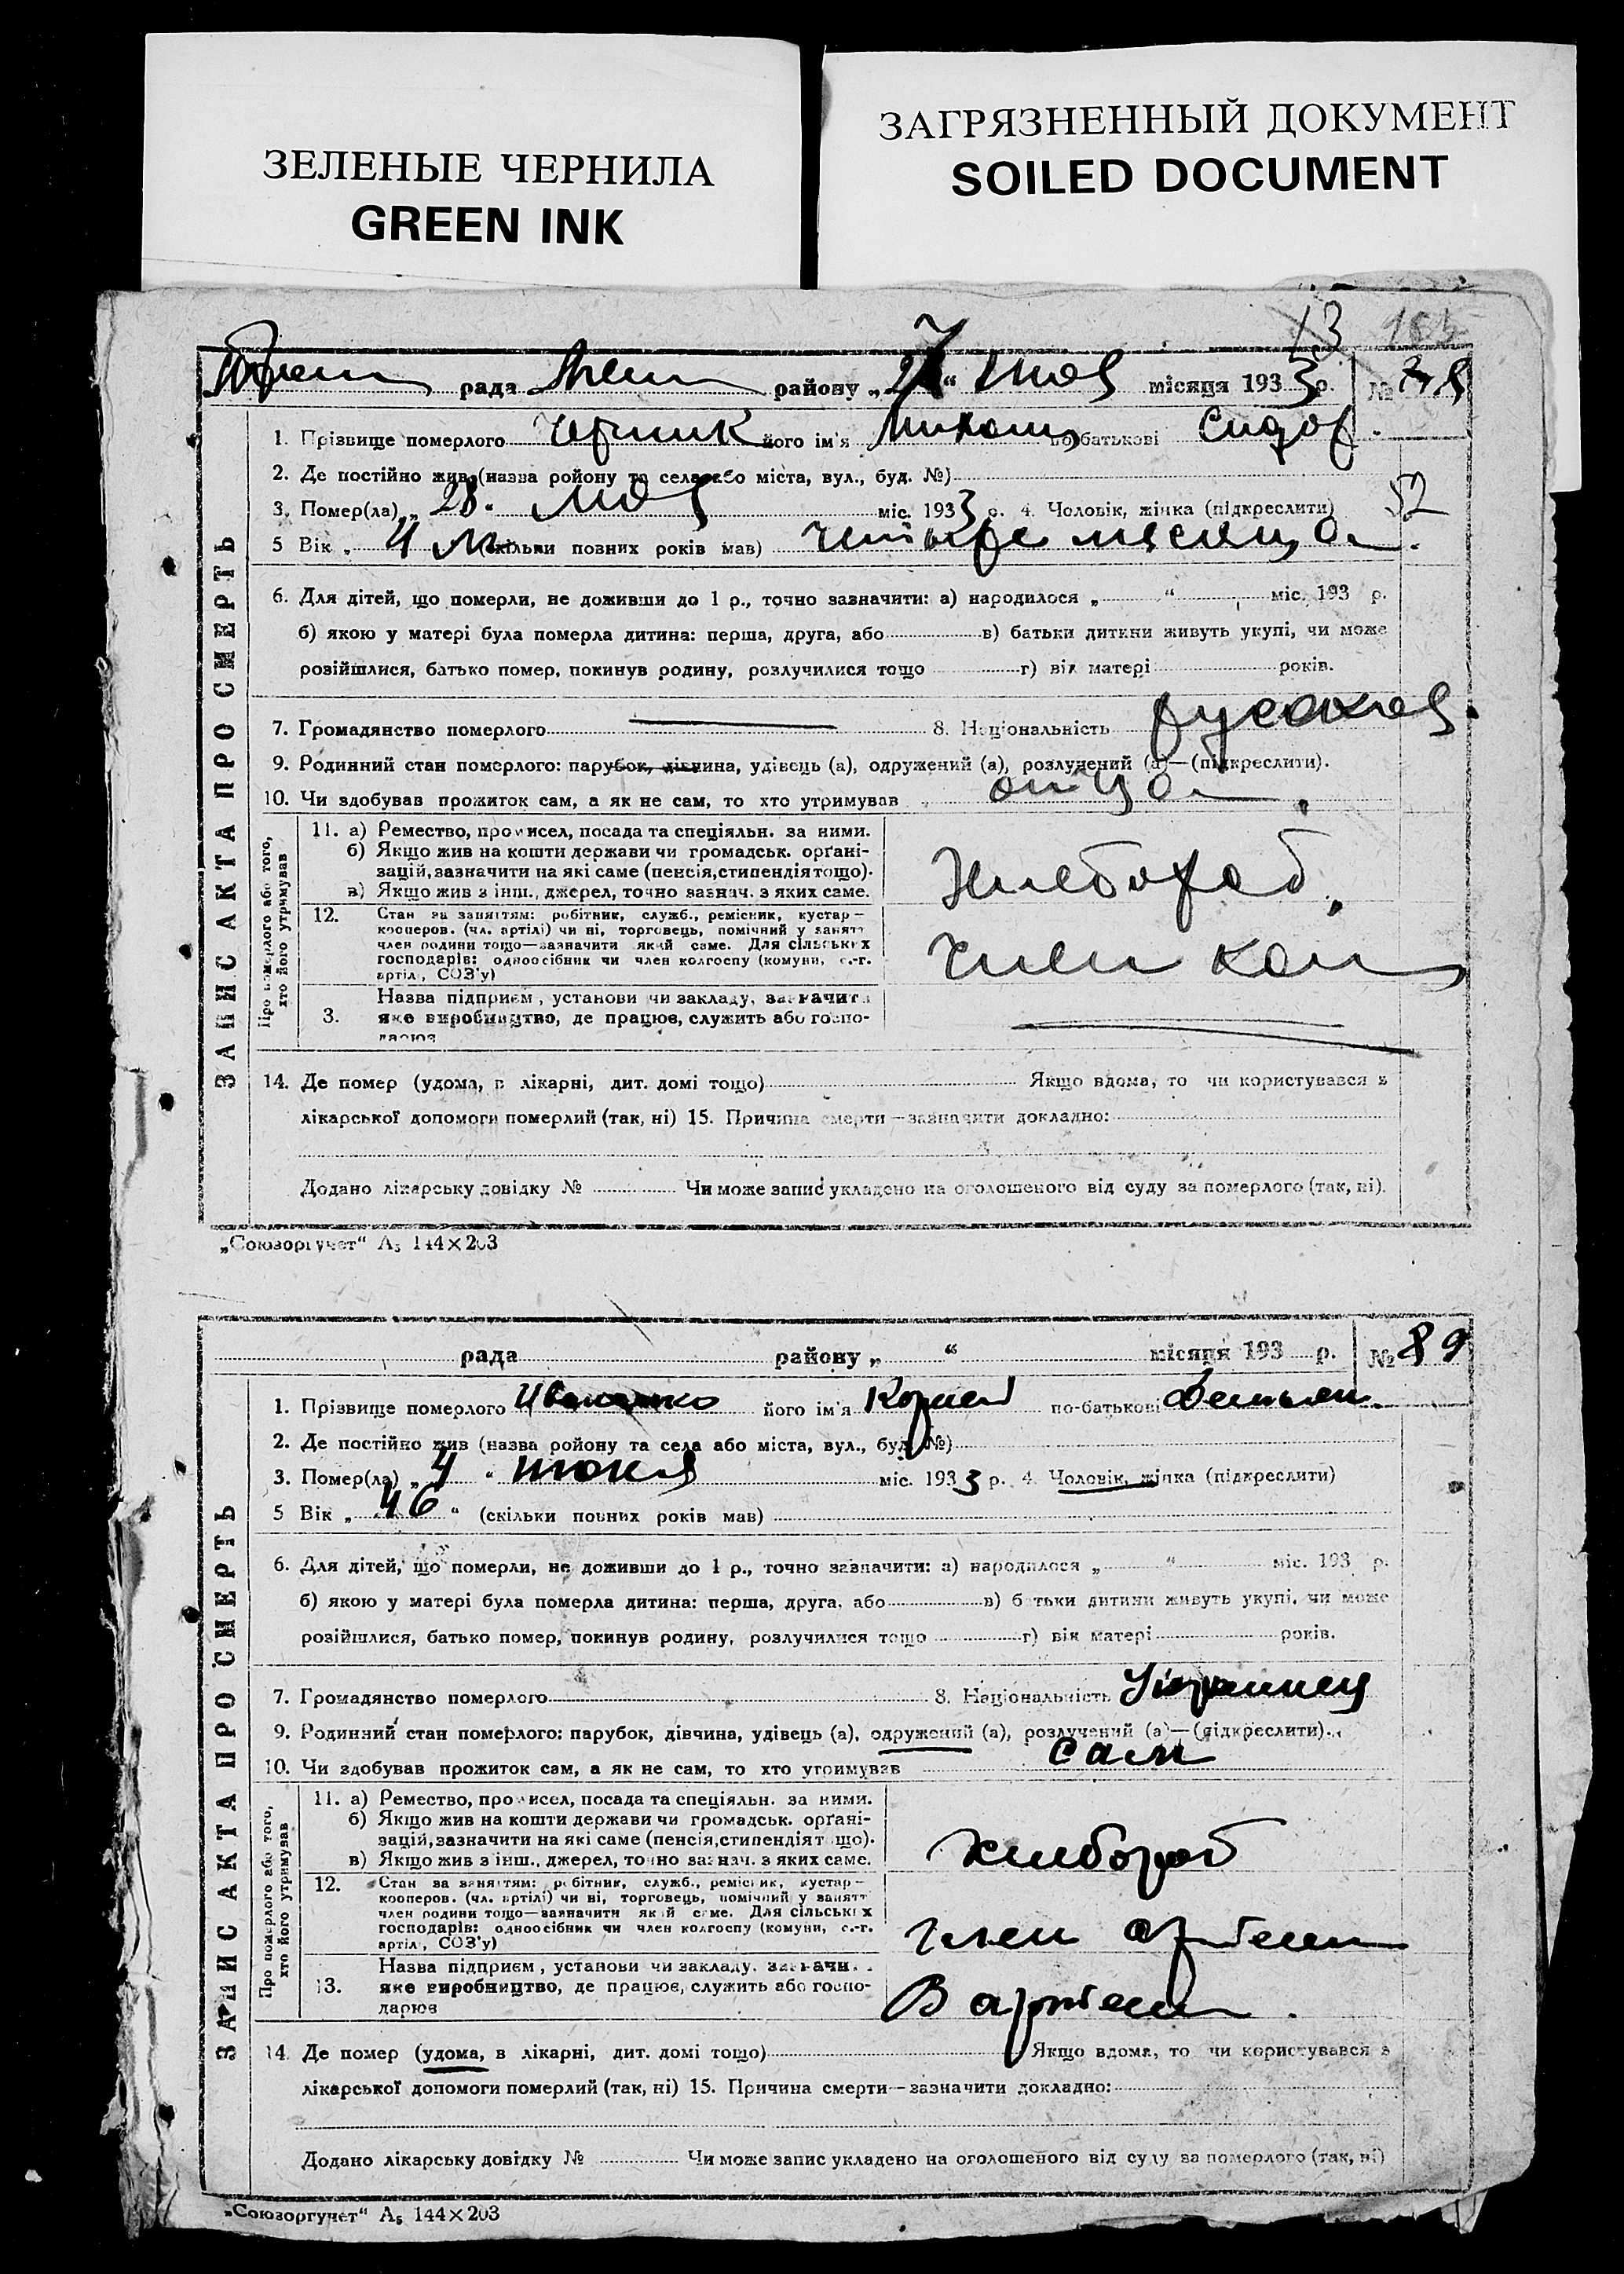 ЗЕЛЕНЫЕ ЧЕРНИЛА
GREEN INK
ЗАГРЯЗНЕННЫЙ ДОКУМЕНТ
SOILED DOCUMENT
13
рада району „ “ місяця 1933 р. №
1. Прізвище померлого його ім'я по-батькові Сидор.
2. Де постійно жив (назва ройону та села або міста, вул., буд. №)
3. Помер(ла) „ 28. мая міс. 1933 р. 4. Чоловік, жінка (підкреслити) 52
5 Вік „ 4 м (скільки повних років мав) четыре месяца.
6. Для дітей, що померли, не доживши до 1 р., точно зазначити: а) народилося „ “ міс. 193 р.
б) якою у матері була померла дитина: перша, друга, або в) батьки дитини живуть укупі, чи може
розійшлися, батько помер, покинув родину, розлучилися тощо г) вік матері років.
7. Громадянство померлого 8. Національність
9. Родинний стан померлого: парубок, дівчина, удівець (а), одружений (а), розлучений (а)—(підкреслити).
10. Чи здобував прожиток сам, а як не сам, то хто утримував отца.
ЗАПИС АКТА ПРО СМЕРТЬ
Про померлого або того, хто його утримував
11. а) Ремество, промисел, посада та спеціяльн. за ними.
б) Якщо жив на кошти держави чи громадськ. орґані-
зацій, зазначити на які саме (пенсія, стипендія тощо).
в) Якщо жив з інш., джерел, точно зазнач. з яких саме.
Хлебороб,
12. Стан за заняттям: робітник, служб., ремісник, кустар—
кооперов. (чл. артілі) чи ні, торговець, помічний у занятт
член родини тощо—зазначити який саме. Для сільських
господарів: одноосібник чи член колгоспу (комуни, с.-г.
артілі, СОЗ'у)
член кол
Назва підприєм, установи чи закладу, зазначити
3. яке виробництво, де працює, служить або госпо-
дарює
14. Де помер (удома, в лікарні, дит. домі тощо) Якщо вдома, то чи користувався з
лікарської допомоги померлий (так, ні) 15. Причина смерти—зазначити докладно:
Додано лікарську довідку № Чи може запис укладено на оголошеного від суду за померлого (так, ні).
„Союзоргучет“ А₅ 144×203
рада району „ “ місяця 193 р. № 89
1. Прізвище померлого Иваненко його ім'я Корней по-батькові Демьян.
2. Де постійно жив (назва ройону та села або міста, вул., буд. №)
3. Помер(ла) „ 4 “ июня міс. 1933 р. 4. Чоловік, жінка (підкреслити)
5 Вік „ 46 “ (скільки повних років мав)
6. Для дітей, що померли, не доживши до 1 р., точно зазначити: а) народилося „ “ міс. 193 р.
б) якою у матері була померла дитина: перша, друга, або в) батьки дитини живуть укупі, чи може
розійшлися, батько помер, покинув родину, розлучилися тощо г) вік матері років.
7. Громадянство померлого 8. Національність Украинец
9. Родинний стан померлого: парубок, дівчина, удівець (а), одружений (а), розлучений (а)—(підкреслити).
10. Чи здобував прожиток сам, а як не сам, то хто утримував сам
ЗАПИС АКТА ПРО СМЕРТЬ
Про померлого або того, хто його утримував
11. а) Ремество, промисел, посада та спеціяльн. за ними.
б) Якщо жив на кошти держави чи громадськ. орґані-
зацій, зазначити на які саме (пенсія, стипендія тощо).
в) Якщо жив з інш., джерел, точно зазнач. з яких саме.
Хлебороб
12. Стан за заняттям: робітник, служб., ремісник, кустар—
кооперов. (чл. артілі) чи ні, торговець, помічний у занятт
член родини тощо—зазначити який саме. Для сільських
господарів: одноосібник чи член колгоспу (комуни, с.-г.
артілі, СОЗ'у)
член артели
Назва підприєм, установи чи закладу, зазначи
13. яке виробництво, де працює, служить або госпо-
дарює
В артели.
14. Де помер (удома, в лікарні, дит. домі тощо) Якщо вдома, то чи користувався з
лікарської допомоги померлий (так, ні) 15. Причина смерти—зазначити докладно:
Додано лікарську довідку № Чи може запис укладено на оголошеного від суду за померлого (так, ні)
„Союзоргучет“ А₅ 144×203